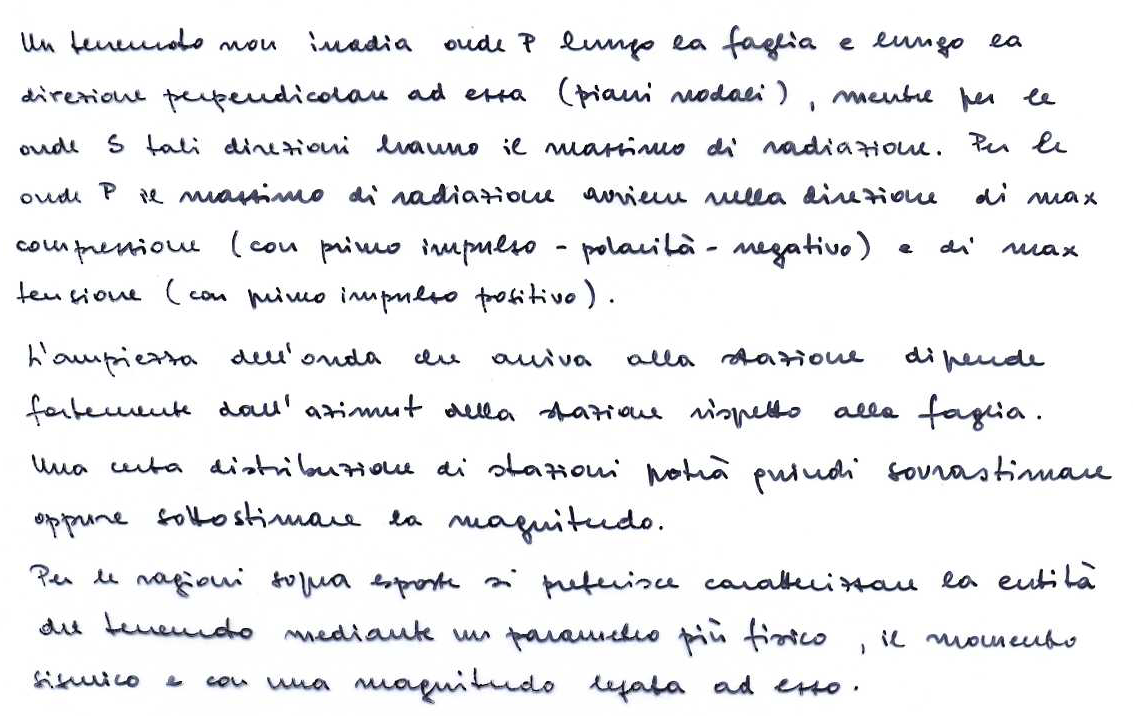 Un terremoto non irradia onde P lungo la faglia e lungo la
direzione perpendicolare ad essa (piani nodali), mentre per le
onde S tali direzioni hanno il massimo di radiazione. Per le
onde P il massimo di radiazione avviene nella direzione di max
compressione (con primo impulso - polarità - negativo) e di max
tensione (con primo impulso positivo).
L'ampiezza dell'onda che arriva alla stazione dipende
fortemente dall'azimut della stazione rispetto alla faglia.
Una certa distribuzione di stazioni potrà quindi sovrastimare
oppure sottostimare la magnitudo.
Per le ragioni sopra esposte si preferisce caratterizzare la entità
del terremoto mediante un parametro più fisico, il momento
sismico e con una magnitudo legata ad esso.